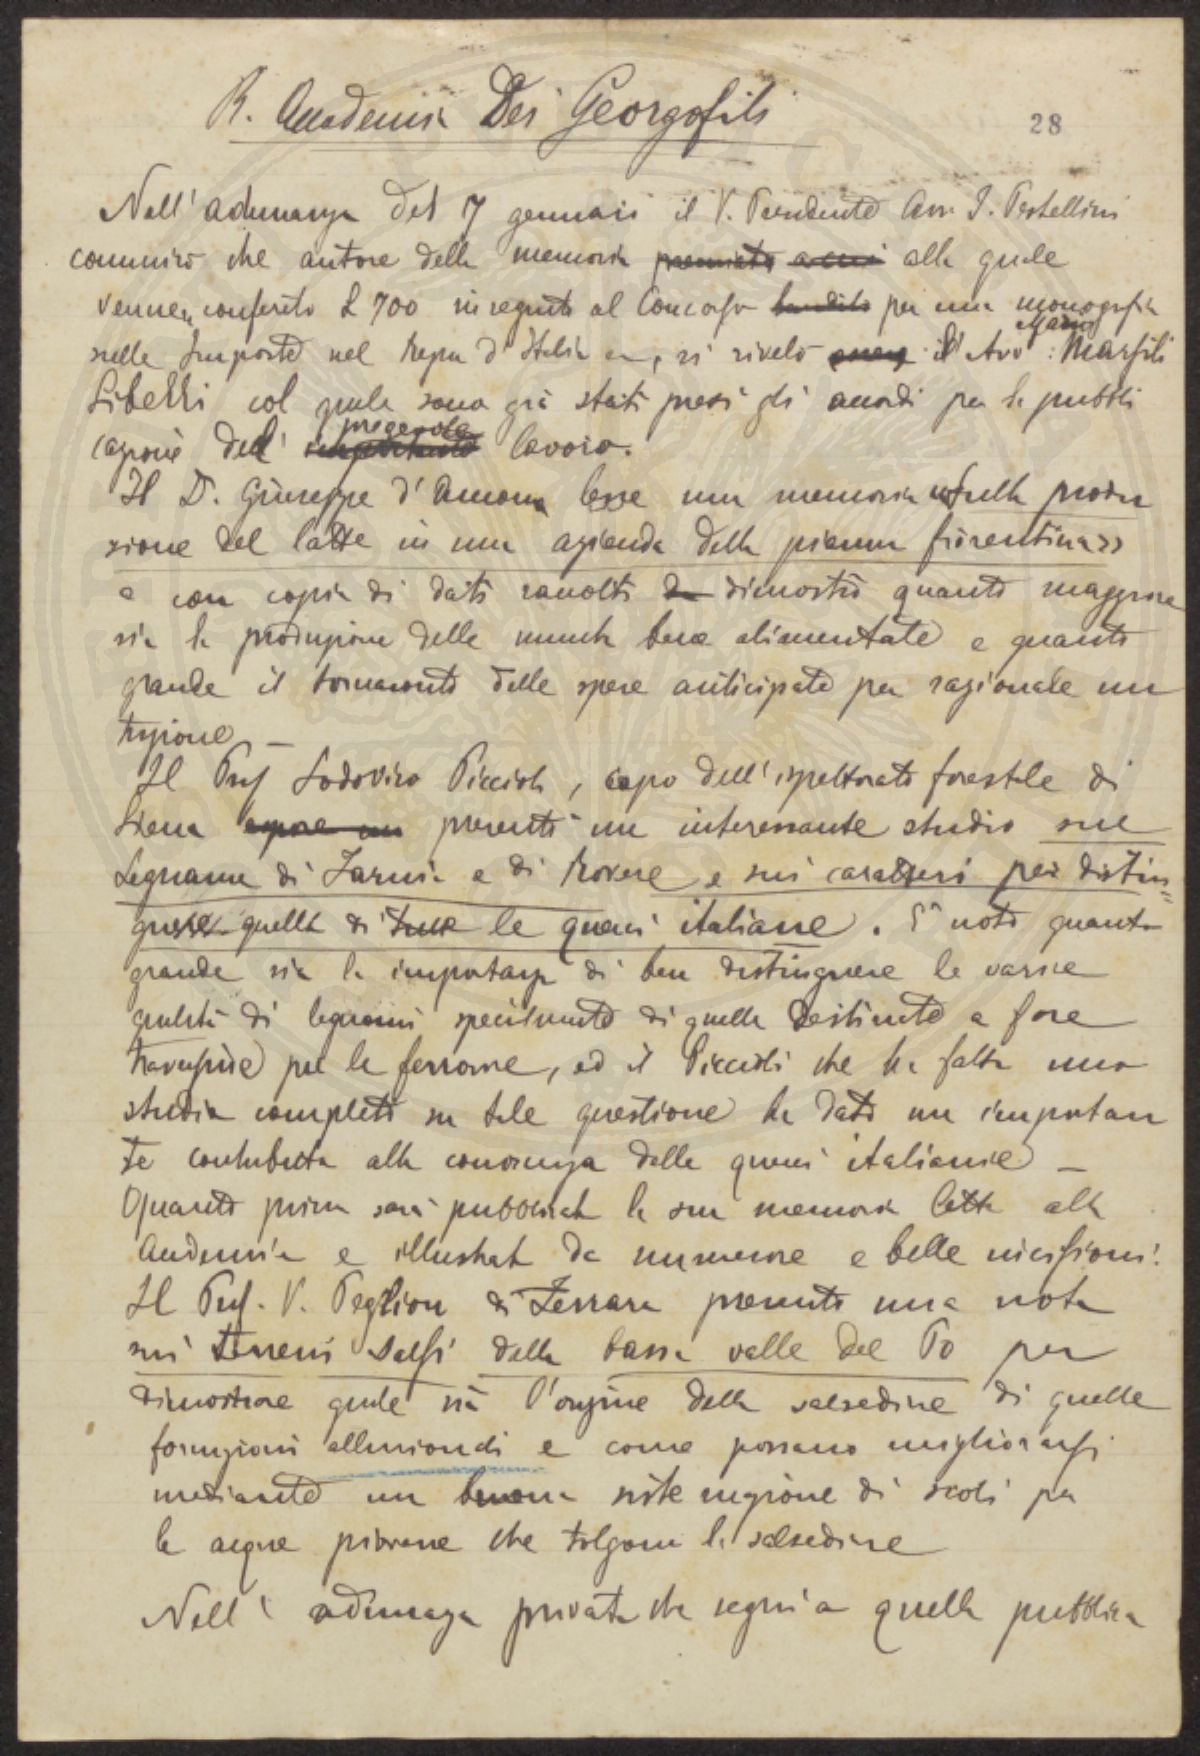 R. Accademia Dei Georgofili
28
Nell' adunanza del 7 gennaio il V. Presidente Avv. I. Pestellini
comunicò che autore della memoria premiata a cui alla quale
venne conferito L 700 in seguito al Concorso bandito per una monografia
sulle Imposte nel Regno d'Italia si rivelò il Avv: Mario Marsili
Libelli col quale sono già stati presi gli accordi per la pubbli
cazione del pregevole lavoro.
Il D. Giuseppe d'Ancona lesse una memoria "sulla produ
zione del latte in una azienda della pianura fiorentina"
e con copia di dati raccolti dimostrò quanto maggiore
sia la produzione delle mucche bene alimentate e quanto
grande il tornaconto delle spese anticipate per razionale nu
trizione
Il Prof Lodovico Piccioli, capo dell'ispettorato forestale di
Siena espose un presentò un interessante studio sul
Legname di Farnia e di Rovere e sui caratteri per distin
guere quelle di tutte le querci italiane. E' noto quanto
grande sia la importanza di ben distinguere le varie
qualità di legnami specialmente di quelle destinate a fare
traversine per le ferrovie, ed il Piccioli che ha fatto uno
studio completo su tale questione ha dato un importan
te contributo alla conoscenza delle querci italiane –
Quanto prima sarà pubblicata la sua memoria letta alla
Accademia e illustrata da numerose e belle incisioni.
Il Prof. V. Peglion di Ferrara presentò una nota
sui terreni salsi della bassa valle del Po per
dimostrare quale sia l'origine della salsedine di quelle
formazioni alluvionali e come possano migliorarsi
mediante una buona sistemazione di scoli per
le acque piovane che tolgono la salsedine
Nell' adunanza privata che seguì a quella pubblica